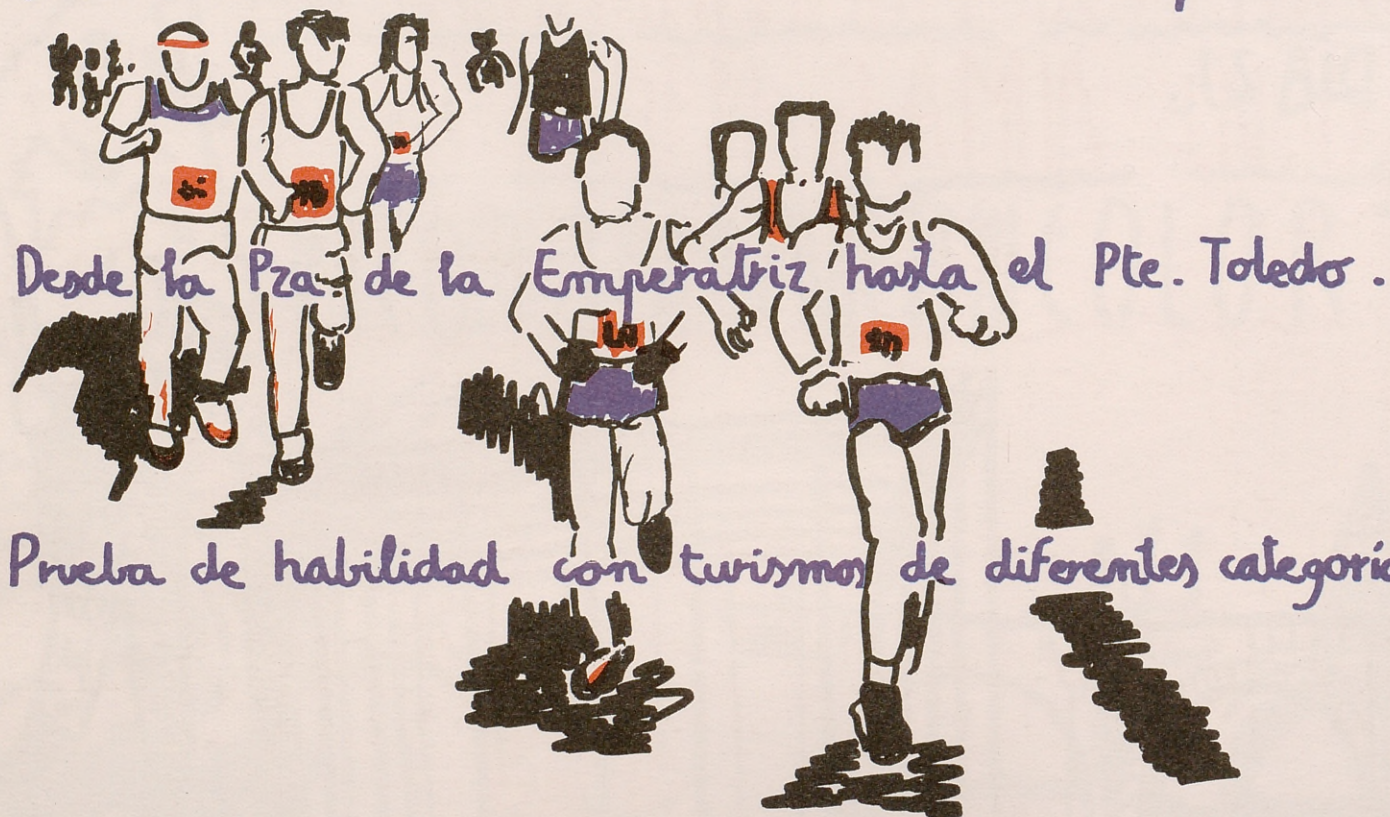 Desde la Pza. de la Emperatriz hasta el Pte. Toledo.
Prueba de habilidad con turismos de diferentes